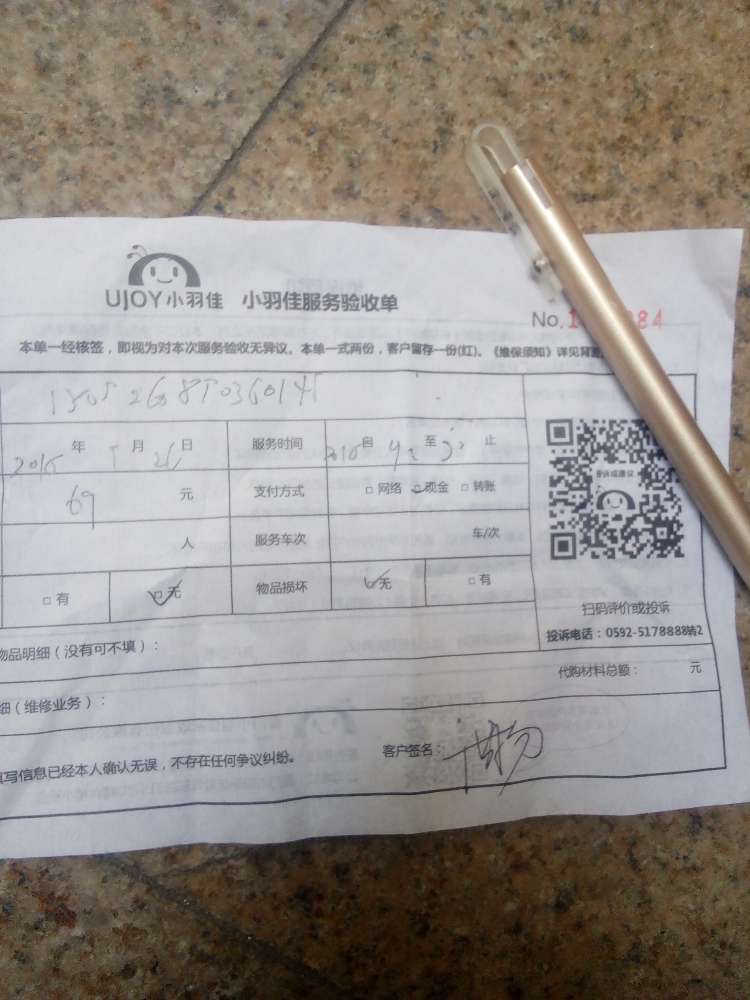 UJOY小羽佳 小羽佳服务验收单
No.1 884
本单一经核签，即视为对本次服务验收无异议。本单一式两份，客户留存一份(红)。《维保须知》详见背面
年 月 26 日 服务时间 自 至 止
69 元 支付方式 □网络 □现金 □转账
人 服务车次 车/次
□有 □无 物品损坏 □无 □有
投诉或建议
扫码评价或投诉
投诉电话：0592-5178888转2
物品明细（没有可不填）：
代购材料总额： 元
细（维修业务）：
填写信息已经本人确认无误，不存在任何争议纠纷。 客户签名：